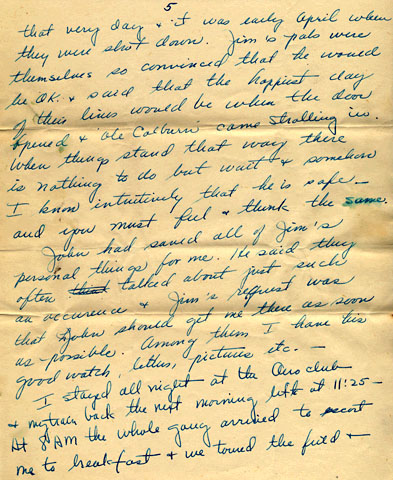 5
that very day & it was early April when
they were shot down. Jim's pals were
themselves so convinced that he would
be O.K. & said that the happiest day
of their lives would be when the door
opened & 'ole Colburn came strolling in.
When things stand that way there
is nothing to do but wait & somehow
I know intuitively that he is safe —
and you must feel & think the same.
John had saved all of Jim's
personal things for me. He said they
often talked about just such
an occurence & Jim's request was
that John should get me there as soon
as possible. Among them I have his
good watch, letters, pictures etc. —
I stayed all night at the Aero club
& my train back the next morning left at 11:25 —
At 8 AM the whole gang arrived to escort
me to breakfast & we toured the field &